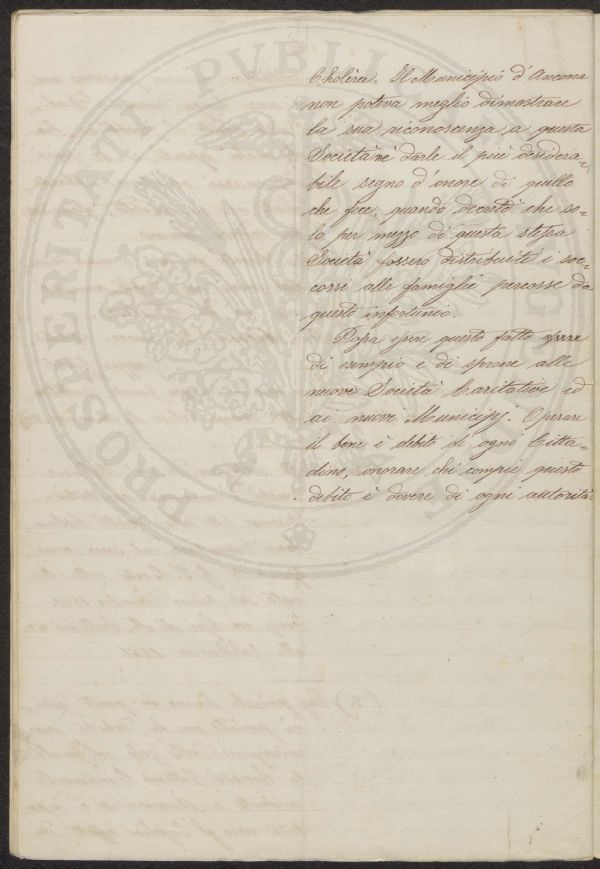 Cholèra. Il Municipio d'Ancona
non poteva meglio dimostrare
la sua riconoscenza, a questa
Società nè darle il più desidera-
bile segno d'onore di quello
che fece, quando decretò che so-
lo per mezzo di questa stessa
Società fossero distribuiti i soc-
corsi alle famiglie percosse da
questo infortunio.
Possa questo fatto
di esempio e di sprone alle
nuove Società Caritative ed
ai nuovi Municipj. Operare
il bene è debito di ogni Citta-
dino, onorare chi compie questo
debito è dovere di ogni autorità.
PROSPERITATI PVBLICAE